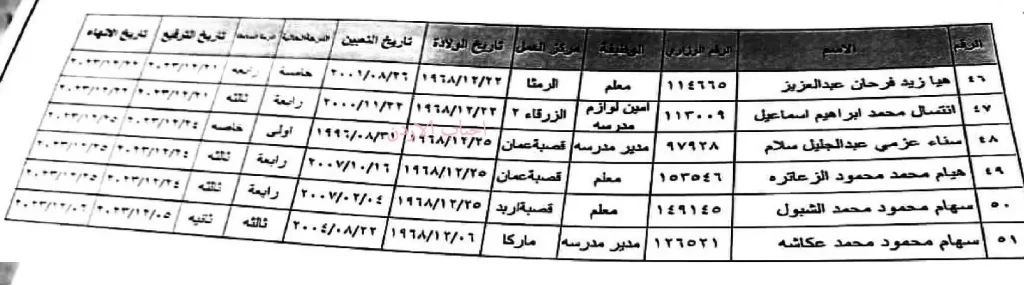 الرقم الاسم الرقم الوزاري الوظيفة مركز العمل تاريخ الولادة تاريخ التعيين الدرجة الحالية تاريخ الترفيع تاريخ الانهاء
٤٦ هيا زيد فرحان عبدالعزيز ١١٤٦٦٥ معلم الرمثا ١٩٦٨/١٢/٢٢ ٢٠٠١/٠٨/٢٦ خامسة رابعه ٢٠٢٣/١٢/٢١ ٢٠٢٣/١٢/٢٢
٤٧ انتسال محمد ابراهيم اسماعيل ١١٣٠٠٩ امين لوازم مدرسه الزرقاء ٢ ١٩٦٨/١٢/٢٢ ٢٠٠٠/١١/٢٢ رابعة ثالثه ٢٠٢٣/١٢/٢١ ٢٠٢٣/١٢/٢٢
٤٨ سناء عزمي عبدالجليل سلام ٩٧٩٢٨ مدير مدرسه قصبة عمان ١٩٦٨/١٢/٢٥ اولى خاصه ٢٠٢٣/١٢/٢٤ ٢٠٢٣/١٢/٢٥
٤٩ هيام محمد محمود الزعاتره ١٥٣٥٤٦ معلم قصبة عمان ١٩٦٨/١٢/٢٥ ٢٠٠٧/١٠/١٦ رابعة ثالثه ٢٠٢٣/١٢/٢٤ ٢٠٢٣/١٢/٢٥
٥٠ سهام محمود محمد الشبول ١٤٩١٤٥ معلم قصبة اربد ١٩٦٨/١٢/٢٥ ٢٠٠٧/٠٢/٠٤ رابعة ثالثه ٢٠٢٣/١٢/٢٤ ٢٠٢٣/١٢/٢٥
٥١ سهام محمود محمد عكاشه ١٢٦٥٢١ مدير مدرسه ماركا ١٩٦٨/١٢/٠٦ ٢٠٠٤/٠٨/٢٢ ثالثة ثانيه ٢٠٢٣/١٢/٠٥ ٢٠٢٣/١٢/٠٦
احباب الاردن